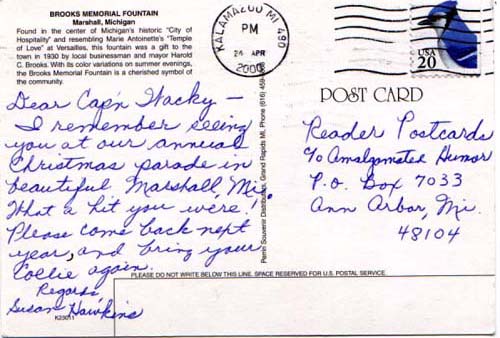 BROOKS MEMORIAL FOUNTAIN
Marshall, Michigan
Found in the center of Michigan's historic "City of
Hospitality" and resembling Marie Antoinette's "Temple
of Love" at Versailles, this fountain was a gift to the
town in 1930 by local businessman and mayor Harold
C. Brooks. With its color variations on summer evenings,
the Brooks Memorial Fountain is a cherished symbol of
the community.
Dear Cap'n Wacky –
I remember seeing
you at our annual
Christmas parade in
beautiful Marshall, Mi.
What a hit you were!
Please come back next
year, and bring your
Collie again.
Regards,
Susan Hawkins
K23011
Perrin Souvenir Distributors, Grand Rapids MI, Phone (616) 459
KALAMAZOO MI 490
PM
24 APR
2000
USA
20
POST CARD
Reader Postcards
c/o Amalgamated Humor
P.O. Box 7033
Ann Arbor, Mi.
48104
PLEASE DO NOT WRITE BELOW THIS LINE. SPACE RESERVED FOR U.S. POSTAL SERVICE.